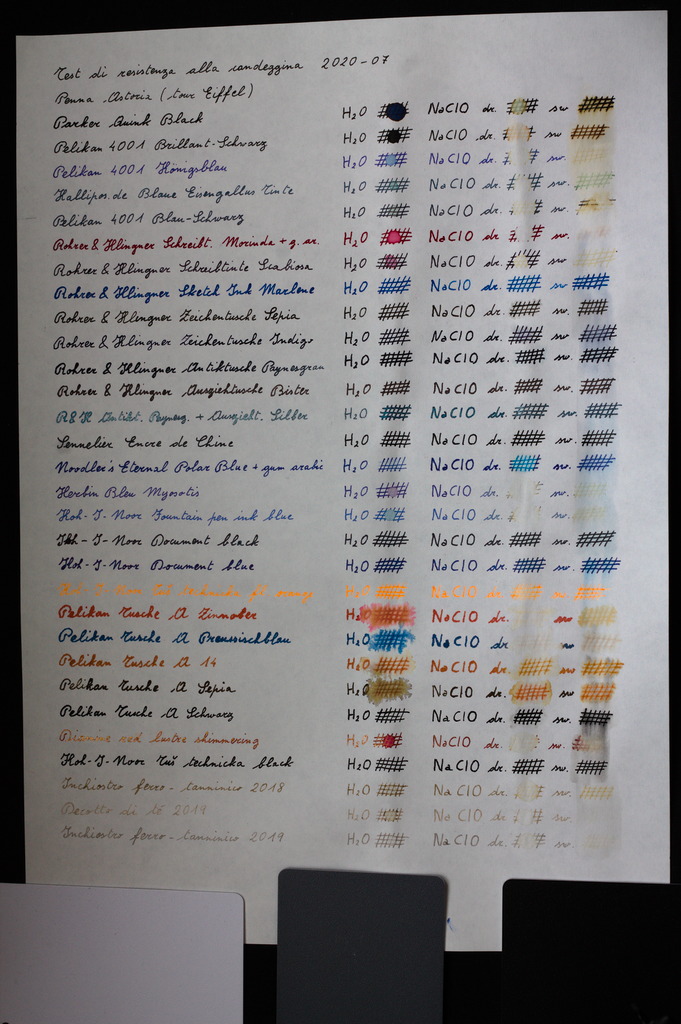 Test di resistenza alla candeggina 2020-07
Penna Astoria (tour Eiffel)
Parker Quink Black H2O NaClO dr. sw.
Pelikan 4001 Brillant-Schwarz H2O NaClO dr. sw.
Pelikan 4001 Königsblau H2O NaClO dr. sw.
Hallipos.de Blaue Eisengallus Tinte H2O NaClO dr. sw.
Pelikan 4001 Blau-Schwarz H2O NaClO dr. sw.
Rohrer & Klingner Schreibt. Morinda + g. ar. H2O NaClO dr. sw.
Rohrer & Klingner Schreibtinte Scabiosa H2O NaClO dr. sw.
Rohrer & Klingner Sketch Ink Marlene H2O NaClO dr. sw.
Rohrer & Klingner Zeichentusche Sepia H2O NaClO dr. sw.
Rohrer & Klingner Zeichentusche Indigo H2O NaClO dr. sw.
Rohrer & Klingner Antiktusche Paynesgrau H2O NaClO dr. sw.
Rohrer & Klingner Ausziehtusche Bister H2O NaClO dr. sw.
R&K Antikt. Paynesg. + Auszieht. Silber H2O NaClO dr. sw.
Sennelier Encre de Chine H2O NaClO dr. sw.
Noodler's Eternal Polar Blue + gum arabic H2O NaClO dr. sw.
Herbin Bleu Myosotis H2O NaClO dr. sw.
Koh-I-Noor Fountain pen ink blue H2O NaClO dr. sw.
Koh-I-Noor Document black H2O NaClO dr. sw.
Koh-I-Noor Document blue H2O NaClO dr. sw.
Koh-I-Noor Tuš technicka fl. orang H2O NaClO dr. sw.
Pelikan Tusche A Zinnober H2O NaClO dr. sw
Pelikan Tusche A Preussischblau H2O NaClO dr sw
Pelikan Tusche A 14 H2O NaClO dr. sw
Pelikan Tusche A Sepia H2O NaClO dr. sw
Pelikan Tusche A Schwarz H2O NaClO dr. sw.
Diamine red lustre shimmering H2O NaClO dr. sw.
Koh-I-Noor Tuš technicka black H2O NaClO dr. sw.
Inchiostro ferro-tanninico 2018 H2O NaClO dr. sw.
Decotto di tè 2019 H2O NaClO dr. sw.
Inchiostro ferro-tanninico 2019 H2O NaClO dr. sw.